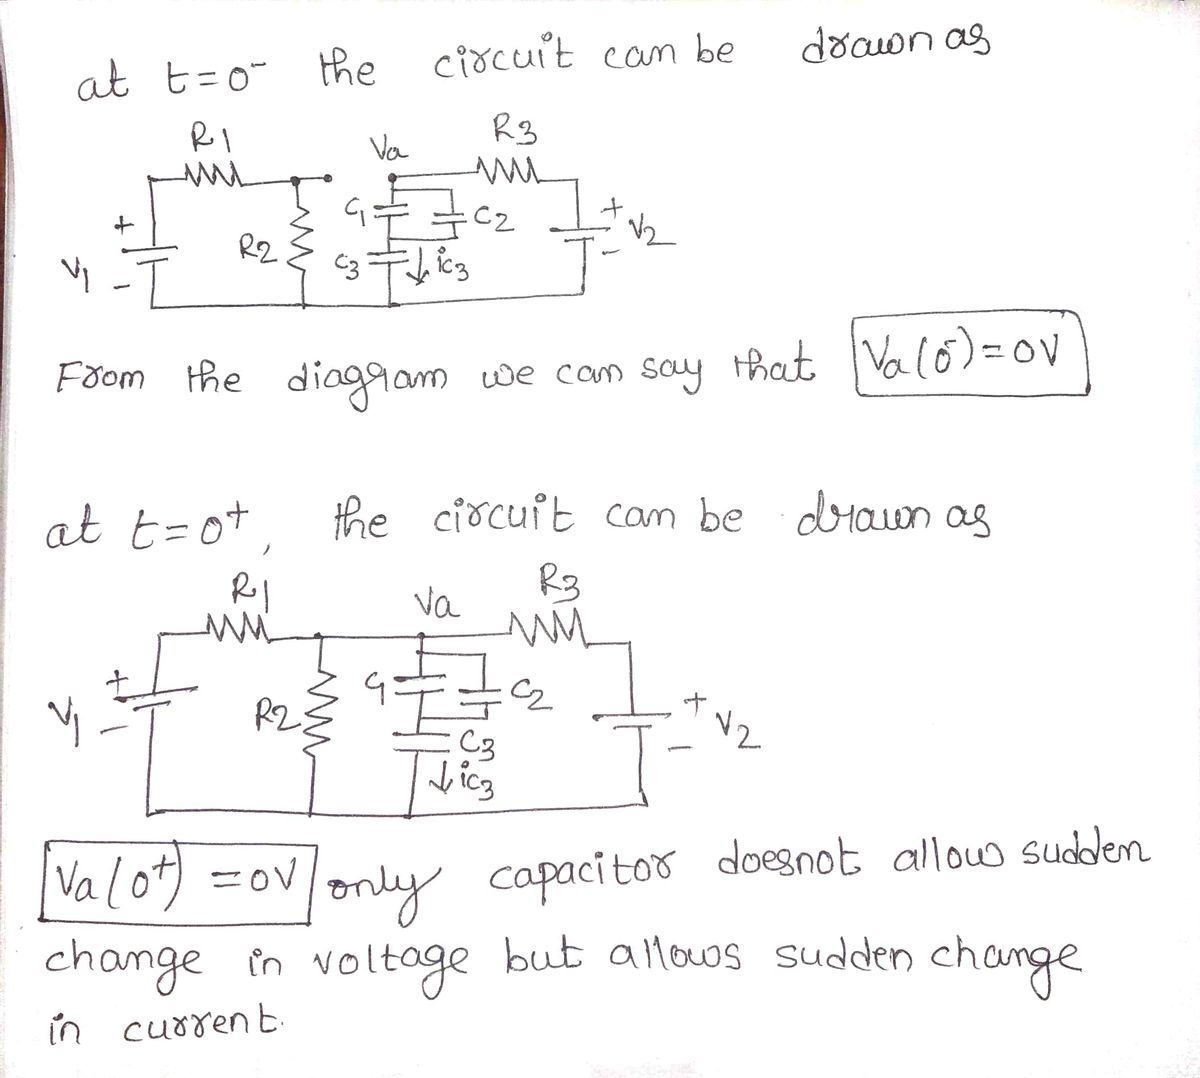 at t=0⁻ the circuit can be drawn as
R1 Va R3
C1 C2
+ + V2
R2 C3 ↓ic3
V1 - -
From the diagram we can say that Va(0⁻)=0V
at t=0⁺, the circuit can be drawn as
R1 Va R3
+ C1 C2 +
V1 R2 V2
- C3 -
↓ic3
Va(0⁺) =0V only capacitor doesnot allow sudden
change in voltage but allows sudden change
in current.